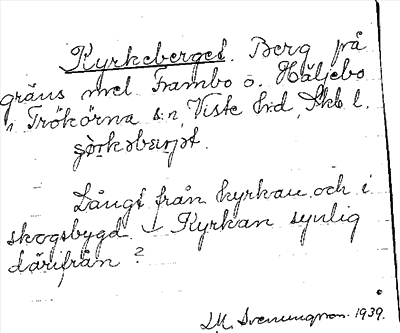 Kyrkeberget. Berg på
gräns mel. Frambo o. Häljebo
i Trökörna sn, Viste hd, Skb l.
Långt från kyrkan och i
skogsbygd. – Kyrkan synlig
därifrån?
Svenungson. 1939.